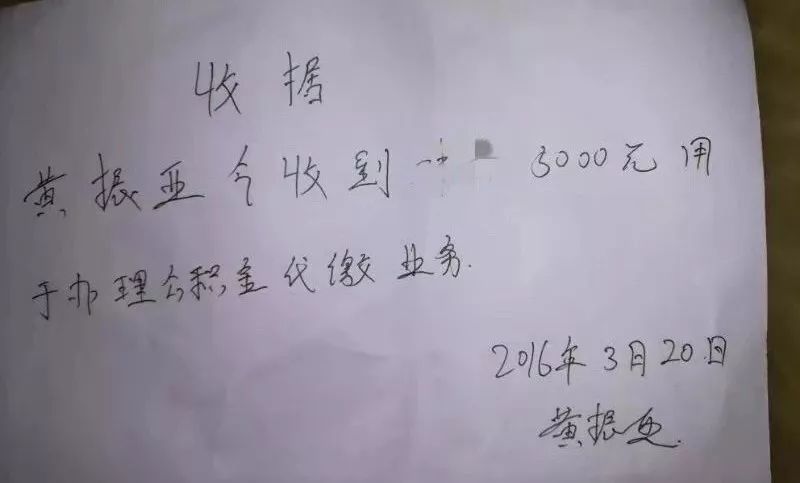 收据
黄振亚今收到 3000元用
于办理公积金代缴业务.
2016年3月20日
黄振亚.